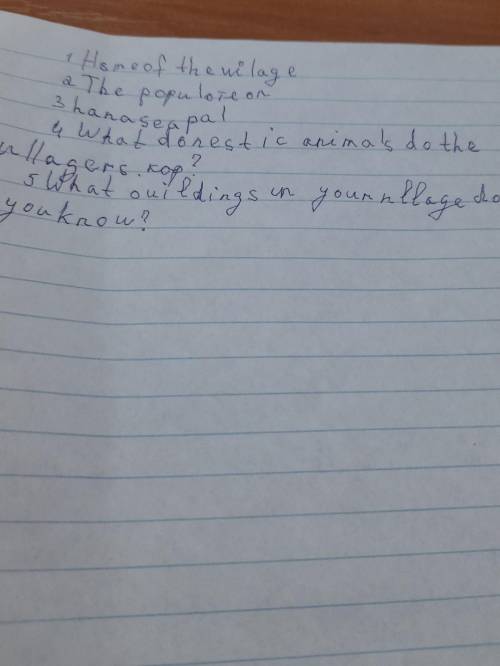 1 Hame of the vilage
2 The populoteon
3 hanaseapal
4 What donestic animals do the
villagers. kop?
5 What ouildings in your nllage do
you know?